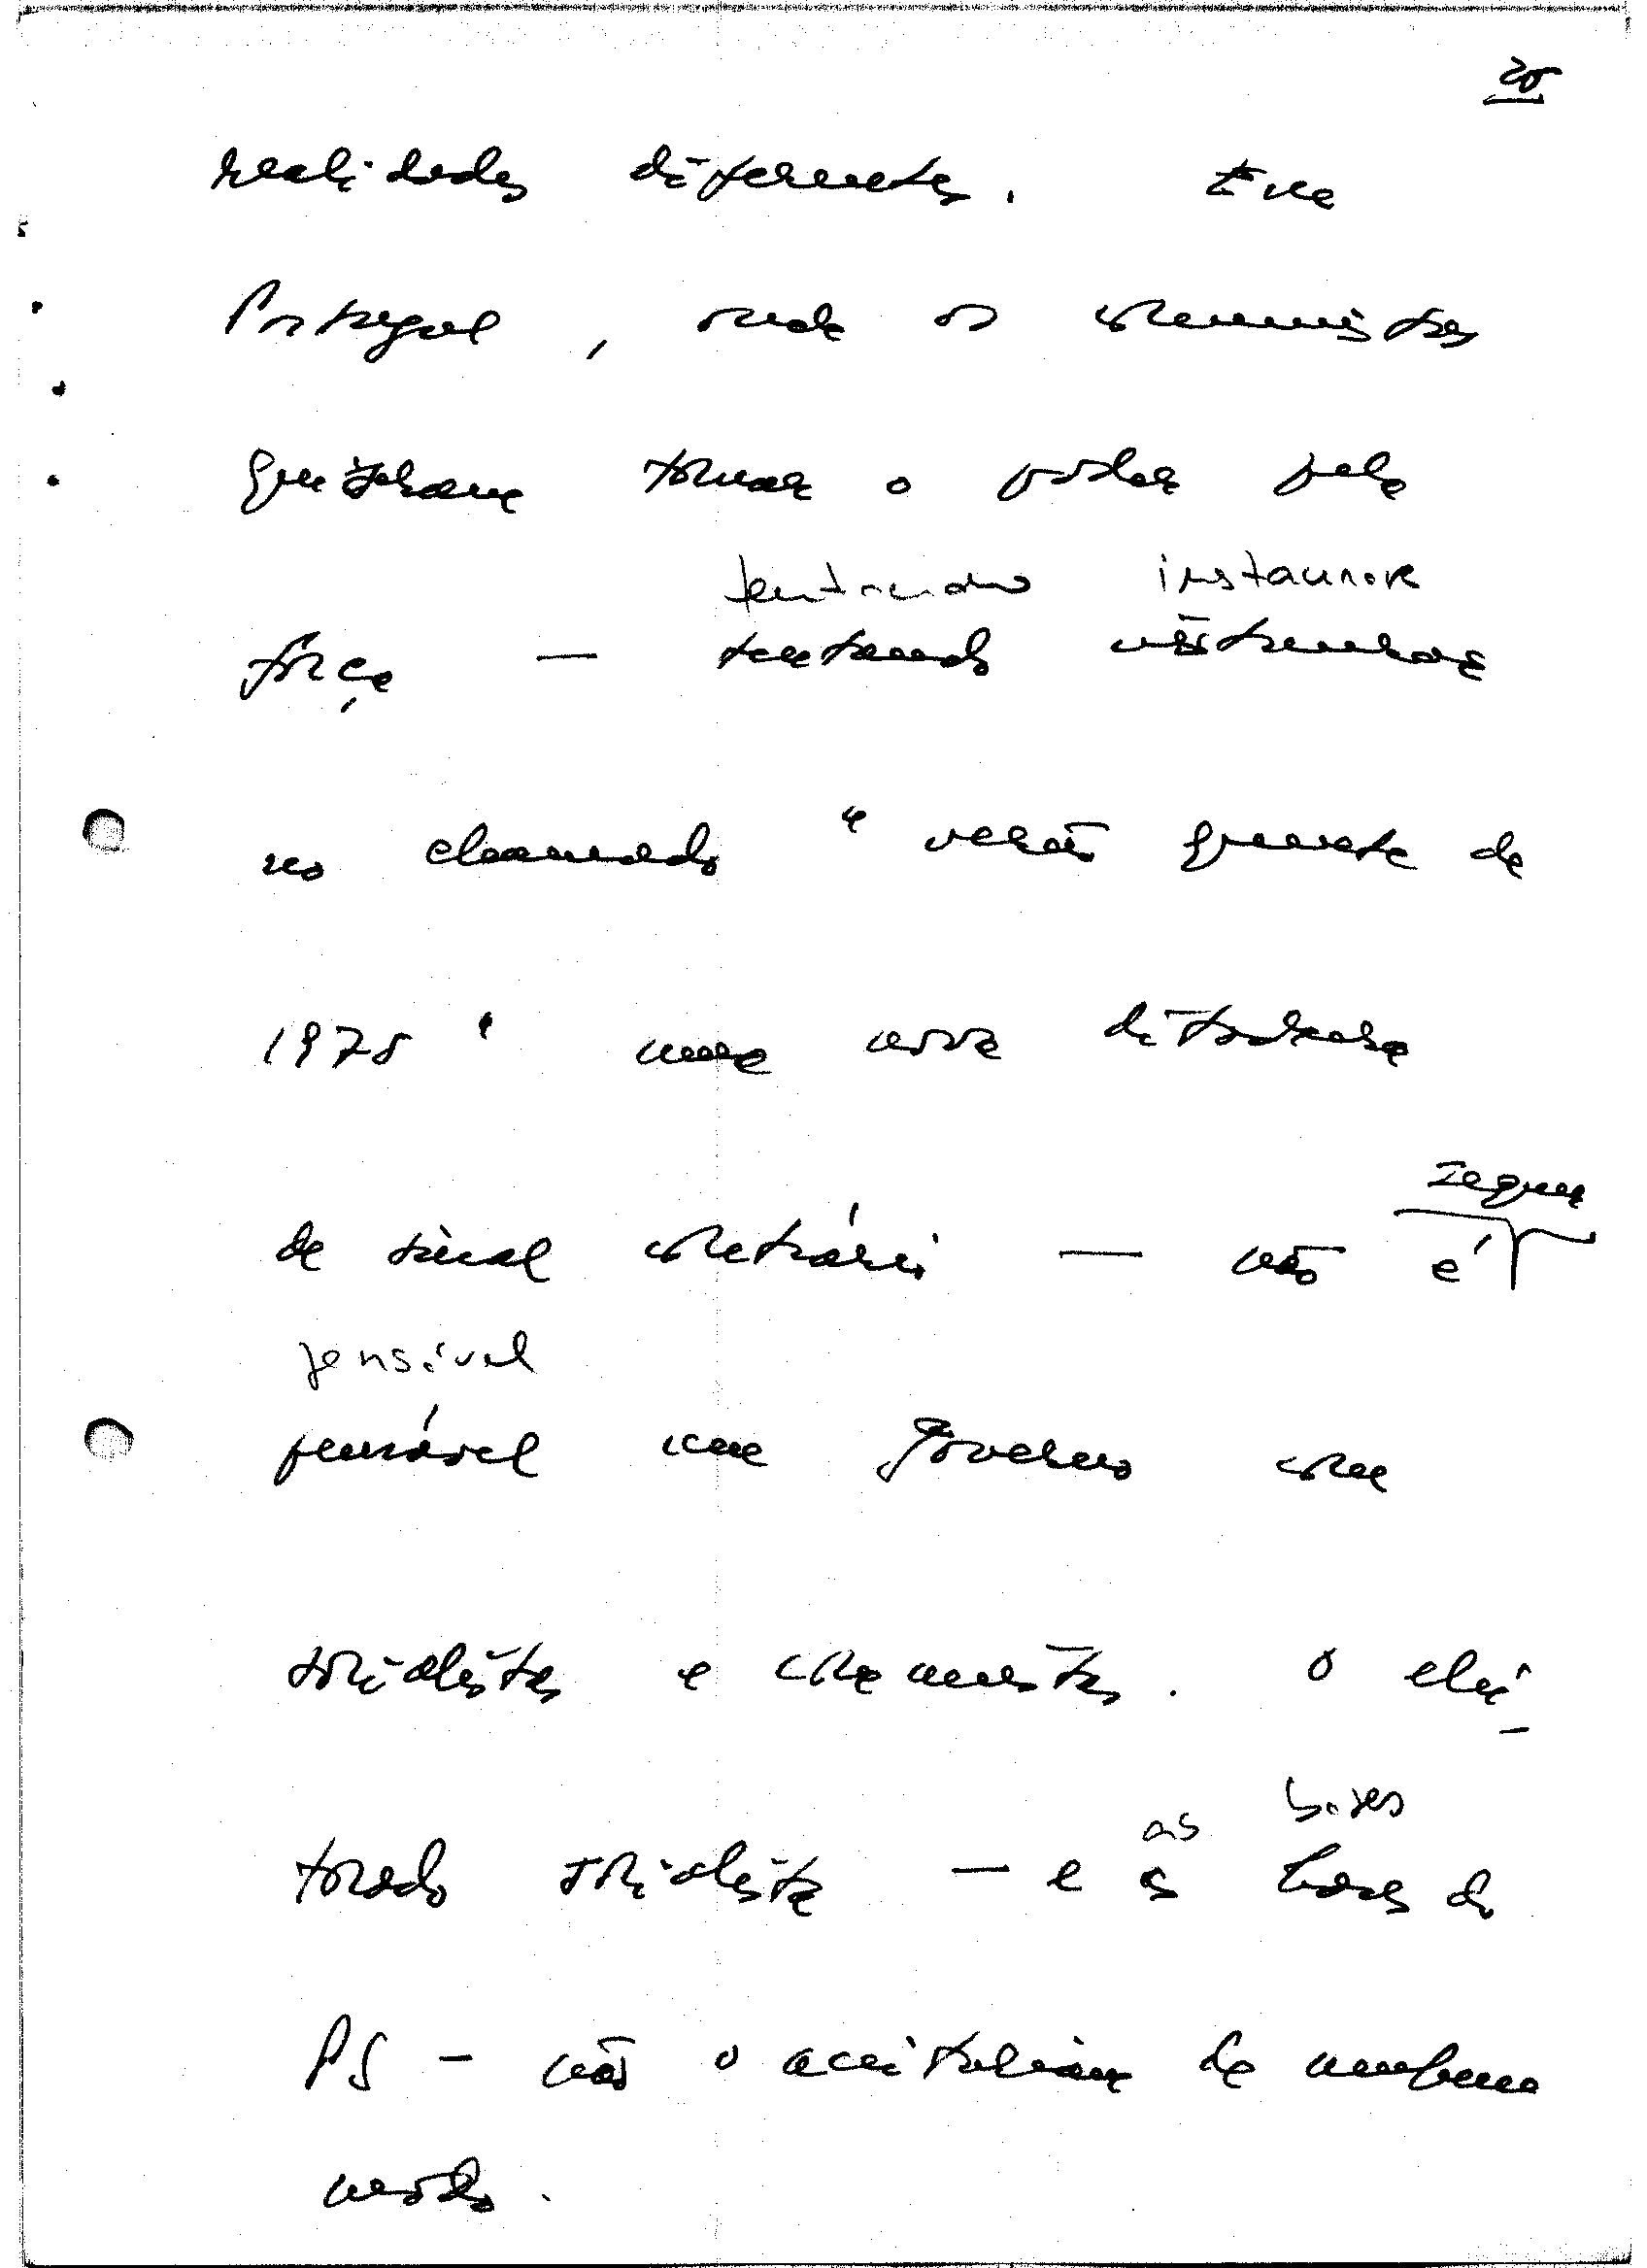 20
realidades diferentes. Em
Portugal, onde os comunistas
quiseram tomar o poder pela
tentando instaurar
força — tentando instaurar
no chamado "verão quente de
1975" uma nova ditadura
sequer
de sinal contrário — não é
pensável
pensável um Governo com
socialistas e comunistas. O elei-
as bases
torado socialista — e as bases do
PS — não o aceitariam de nenhum
modo.